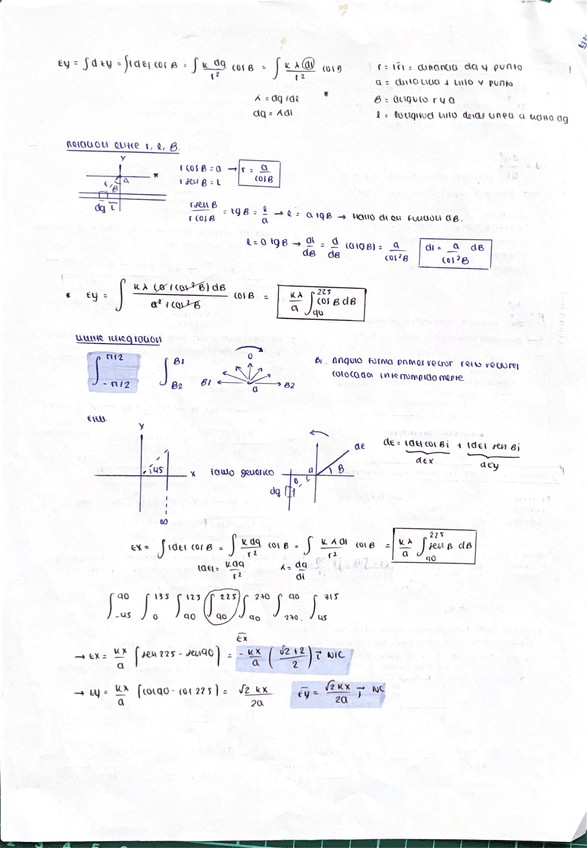 Ey = ∫dEy = ∫|dE| cos B = ∫ K dq / r² cos B = ∫ K λ dl / r² cos B
λ = dq/dl *
dq = λdl
r = |r̄| = distancia dq y punto
a = distancia ⊥ hilo y punto
B = ángulo r y a
l = longitud hilo desde línea a hasta dq
Relación entre r, l, B.
y
x
a
r
B
dq l
r cos B = a → r = a / cos B
r sen B = L
r sen B / r cos B = tg B = l / a → l = a tg B → hallo dl en función dB.
l = a tg B → dl / dB = d / dB (a tg B) = a / cos² B
dl = a / cos² B dB
* Ey = ∫ K λ (a / cos² B) dB / a² / cos² B cos B = K λ / a ∫ 90 225 cos B dB
Límite integración
∫ -π/2 π/2
∫ B2 B1
B1 0 B2
a
Bi. ángulo forma primer vector resto vectores colocados interrumpidamente.
y
x
45
∞
Tomo genérico
dq
a
B
r
dE
B
dE = |dE| cos Bi + |dE| sen Bi
dEx dEy
Ex = ∫ |dE| cos B = ∫ K dq / r² cos B = ∫ K λ dl / r² cos B = K λ / a ∫ 90 225 sen B dB
|dE| = K dq / r² λ = dq / dl
∫ -45 90 ∫ 0 135 ∫ 90 123 ∫ 90 225 ∫ 90 270 ∫ 270 90 ∫ 45 315
→ Ex = K λ / a [sen 225 - sen 90] = - K λ / a ( √2 + 2 / 2 ) i N/C
Ex
→ Ey = K λ / a [cos 90 - cos 225] = √2 K λ / 2a
Ey = √2 K λ / 2a j N/C